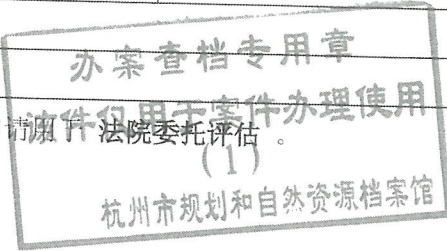 办案查档专用章
该件仅用于案件办理使用
请用于 法院委托评估 。
（1）
杭州市规划和自然资源档案馆